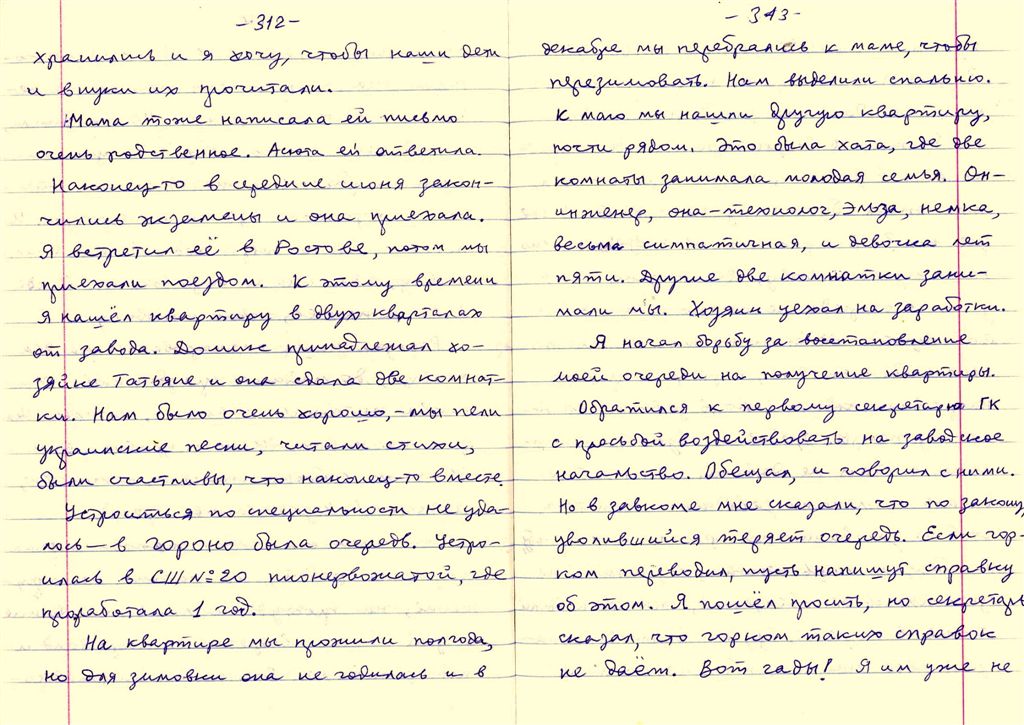 -312-
хранились и я хочу, чтобы наши дети
и внуки их прочитали.
Мама тоже написала ей письмо
очень родственное. Асюта ей ответила.
Наконец-то в середине июня закон-
чились экзамены и она приехала.
Я встретил её в Ростове, потом мы
приехали поездом. К этому времени
я нашёл квартиру в двух кварталах
от завода. Домик принадлежал хо-
зяйке Татьяне и она сдала две комнат-
ки. Нам было очень хорошо, - мы пели
украинские песни, читали стихи,
были счастливы, что наконец-то вместе.
Устроиться по специальности не уда-
лось — в гороно была очередь. Устро-
илась в СШ №20 пионервожатой, где
проработала 1 год.
На квартире мы прожили полгода,
но для зимовки она не годилась и в
-313-
декабре мы перебрались к маме, чтобы
перезимовать. Нам выделили спальню.
К маю мы нашли другую квартиру,
почти рядом. Это была хата, где две
комнаты занимала молодая семья. Он-
инженер, она-технолог, Эльза, немка,
весьма симпатичная, и девочка лет
пяти. Другие две комнатки зани-
мали мы. Хозяин уехал на заработки.
Я начал борьбу за восстановление
моей очереди на получение квартиры.
Обратился к первому секретарю ГК
с просьбой воздействовать на заводское
начальство. Обещал, и говорил с ними.
Но в завкоме мне сказали, что по закону,
уволившийся теряет очередь. Если гор-
ком переводил, пусть напишут справку
об этом. Я пошёл просить, но секретарь
сказал, что горком таких справок
не даёт. Вот гады! Я им уже не